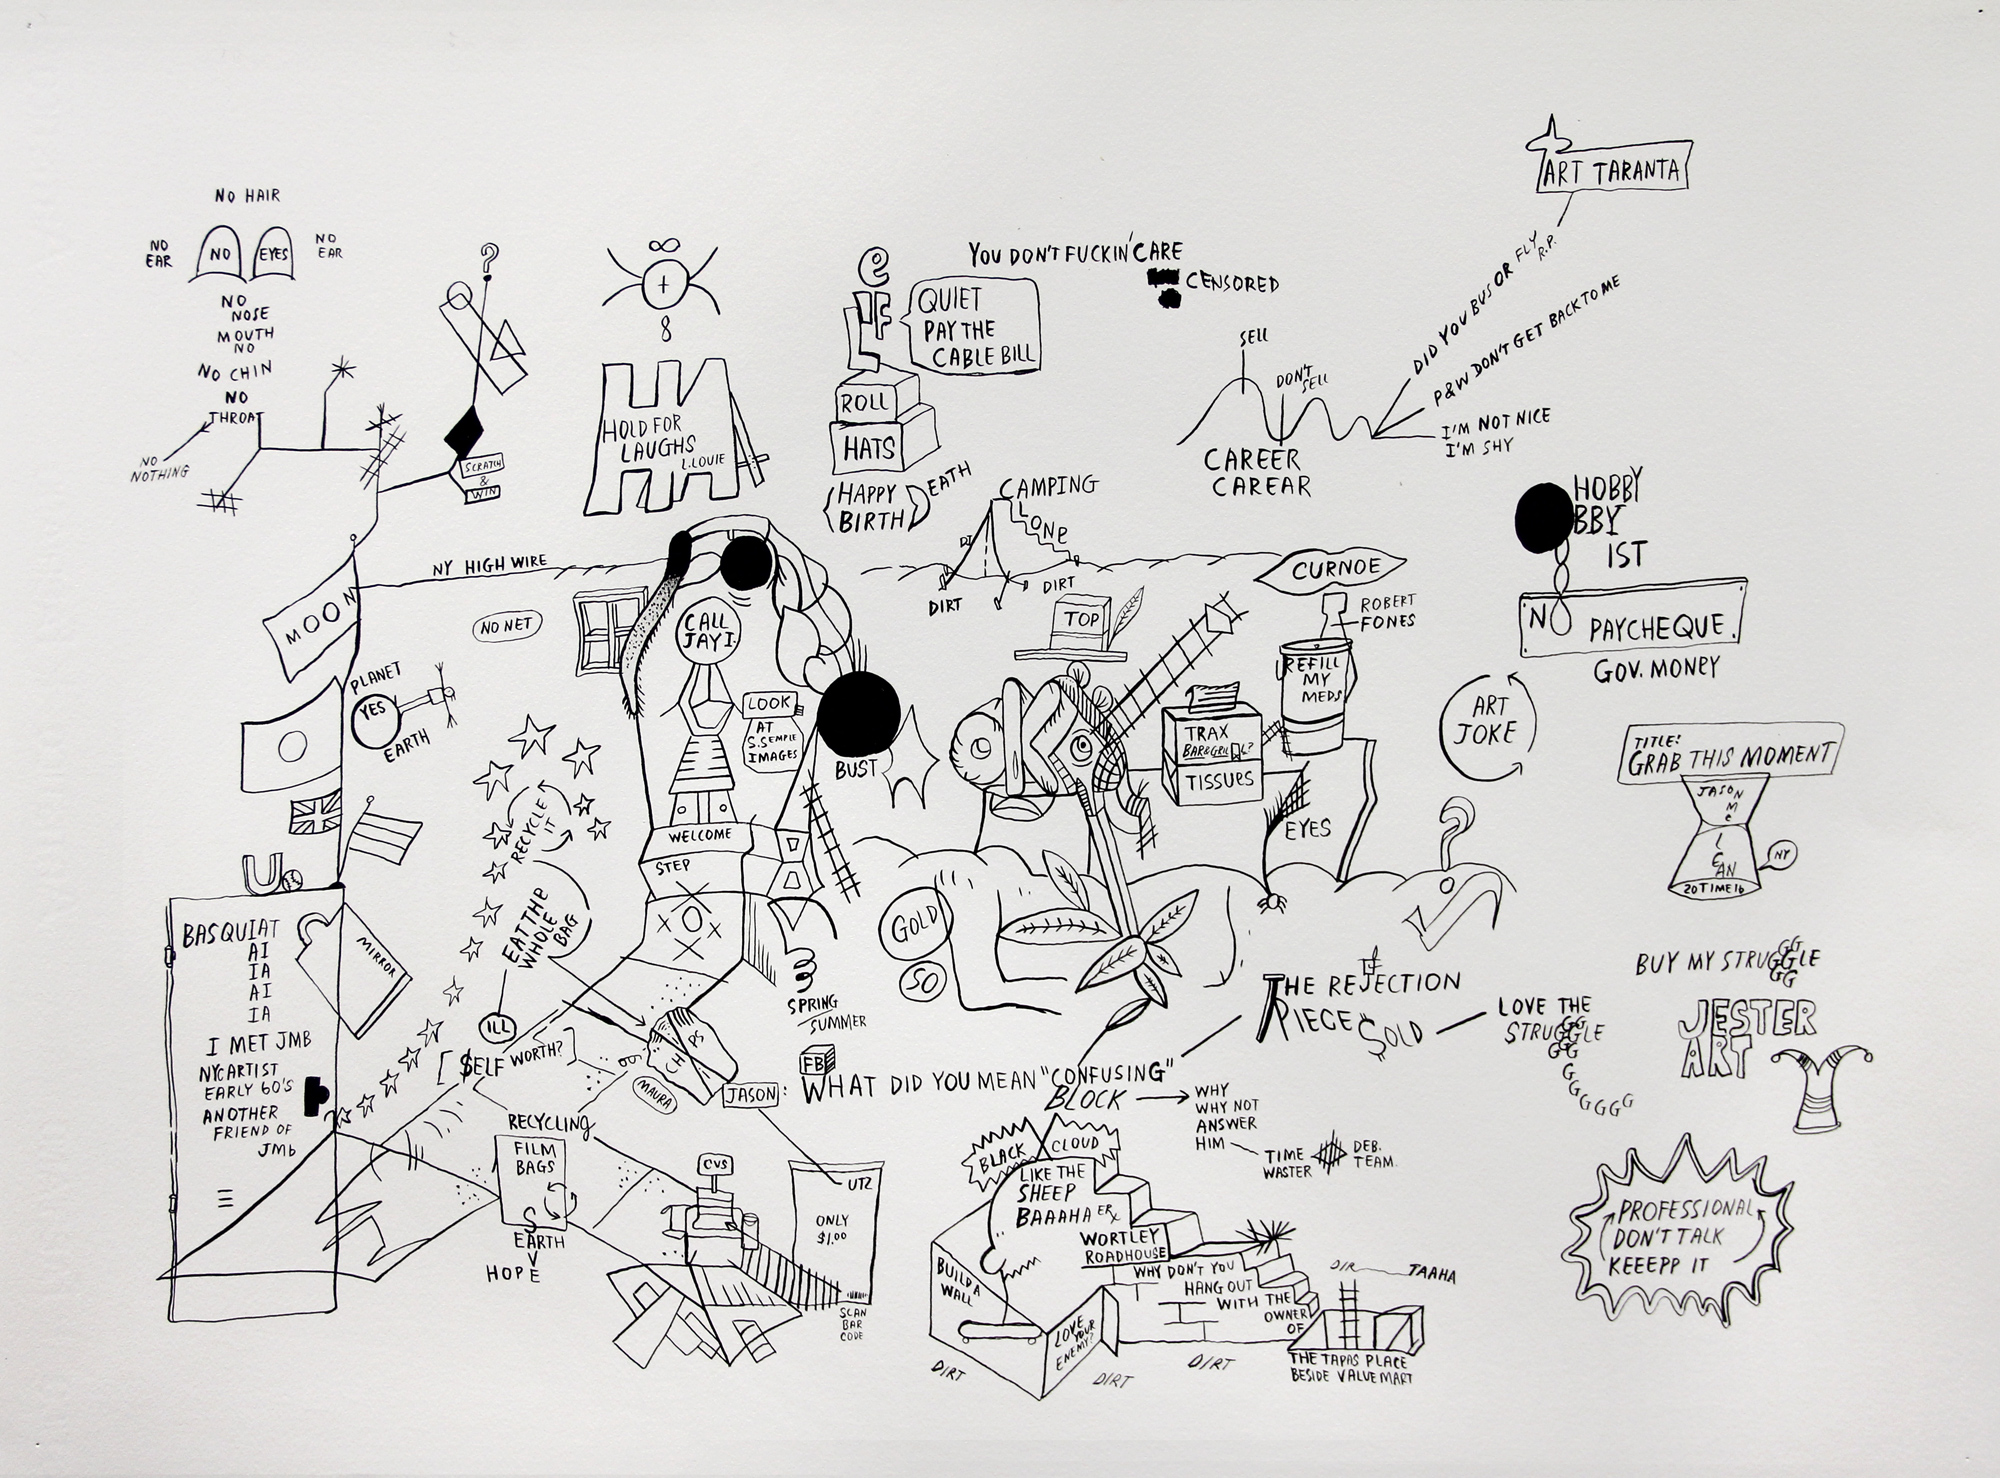 NO HAIR
NO
EAR
NO
EYES
NO
EAR
NO
NOSE
MOUTH
NO
NO CHIN
NO
THROAT
NO
NOTHING
?
SCRATCH
&
WIN
8
HOLD FOR
LAUGHS
L.LOUIE
e
LF
QUIET
PAY THE
CABLE BILL
ROLL
HATS
HAPPY
BIRTH
DEATH
YOU DON'T FUCKIN' CARE
CENSORED
SELL
DON'T
SELL
CAREER
CAREAR
ART TARANTA
DID YOU BUS OR FLY
R.P.
P&W DON'T GET BACK TO ME
I'M NOT NICE
I'M SHY
CAMPING
LONE
DIRT
DIRT
HOBBY
BBY
IST
NO PAYCHEQUE.
GOV. MONEY
NY HIGH WIRE
NO NET
MOON
PLANET
YES
EARTH
CALL
JAY I.
LOOK
AT
S.SEMPLE
IMAGES
BUST
TOP
CURNOE
ROBERT
FONES
REFILL
MY
MEDS
TRAX
BAR & GRILL?
TISSUES
EYES
ART
JOKE
TITLE:
GRAB THIS MOMENT
JASON
McLEAN
20TIME16
NY
RECYCLE
IT
WELCOME
STEP
EAT THE
WHOLE
BAG
ILL
GOLD
SO
SPRING
SUMMER
U
BASQUIAT
AI
IA
AI
IA
I MET JMB
NYC ARTIST
EARLY 60'S
ANOTHER
FRIEND OF
JMb
MIRROR
[$ELF WORTH?]
CHIPS
MAURA
FB
JASON: WHAT DID YOU MEAN "CONFUSING"
BLOCK
WHY
WHY NOT
ANSWER
HIM
TIME
WASTER
DEB.
TEAM.
THE REJECTION
PIECE $OLD
LOVE THE
STRUGGLE
GG
GG
GGGGGG
BUY MY STRUGGLE
GG
GG
JESTER
ART
PROFESSIONAL
DON'T TALK
KEEEPP IT
RECYCLING
FILM
BAGS
S
EARTH
V
HOPE
CVS
UTZ
ONLY
$1.00
SCAN
BAR
CODE
BLACK
CLOUD
LIKE THE
SHEEP
BAAAHA ERX
WORTLEY
ROADHOUSE
WHY DON'T YOU
HANG OUT
WITH THE
OWNER
OF
THE TAPAS PLACE
BESIDE VALUE MART
BUILD A
WALL
LOVE
YOUR
ENEMY?
DIRT
DIRT
DIRT
DIR TAAHA